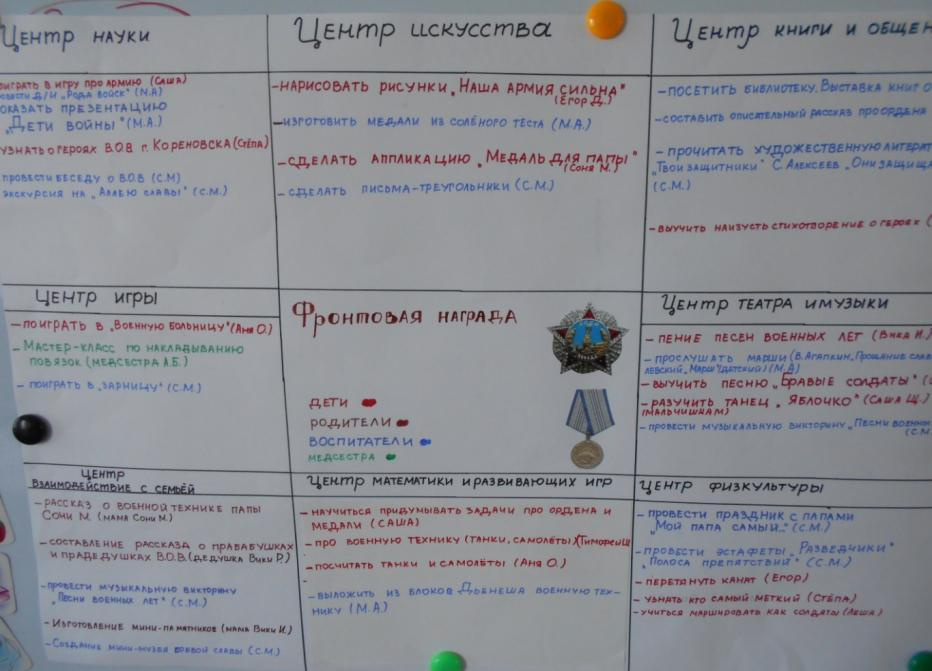 Центр науки
оиграть в игру про армию (Саша)
овести Д/И „Рода войск" (М.А)
оказать презентацию
„Дети войны" (М.А.)
узнать о героях В.О.В г. Кореновска (Стёпа)
провести беседу о В.О.В (С.М)
экскурсия на „Аллею славы" (С.М.)
Центр искусства
-нарисовать рисунки „Наша армия сильна"
(Егор Д.)
-изготовить медали из солёного теста (М.А.)
-сделать аппликацию „Медаль для папы"
(Соня М.)
-сделать письма-треугольники (С.М.)
Центр книги и общен
-посетить библиотеку. Выставка книг о
-составить описательный рассказ про ордена
-прочитать художественную литерат
„Твои защитники" С. Алексеев „Они защища
(С.М.)
-выучить наизусть стихотворение о героях (
Центр игры
-поиграть в „Военную больницу" (Аня О.)
-Мастер-класс по накладыванию
повязок (медсестра А.Б.)
-поиграть в „Зарницу" (С.М.)
Фронтовая награда
дети
родители
воспитатели
медсестра
Центр театра и музыки
-пение песен военных лет (Вика И.)
-прослушать марши (В. Агапкин „Прощание слав
левский „Марш" (детский) (М.А)
-выучить песню „Бравые солдаты" (
-разучить танец „Яблочко" (Саша Щ.)
(мальчишкам)
-провести музыкальную викторину „Песни военны
(С.М
Центр
Взаимодействие с семьёй
-рассказ о военной технике папы
Сони М. (мама Сони М.)
-составление рассказ о прабабушках
и прадедушках В.О.В. (дедушка Вики Р.)
-провести музыкальную викторину
„Песни военных лет" (С.М.)
-Изготовление мини-памятников (мама Вики И.)
-Создание мини-музея боевой славы (С.М.)
Центр математики и развивающих игр
-научиться придумывать задачи про ордена и
медали (Саша)
-про военную технику (танки, самолёты) (Тимофей
-посчитать танки и самолёты (Аня О.)
-выложить из блоков Дьенеша военную тех-
нику (М.А.)
Центр физкультуры
-провести праздник с папами
„Мой папа самый..." (С.М.)
-провести эстафеты „Разведчики"
„Полоса препятствий" (С.М.)
-перетянуть канат (Егор)
-узнать кто самый меткий (Стёпа)
-учиться маршировать как солдаты (Леша)